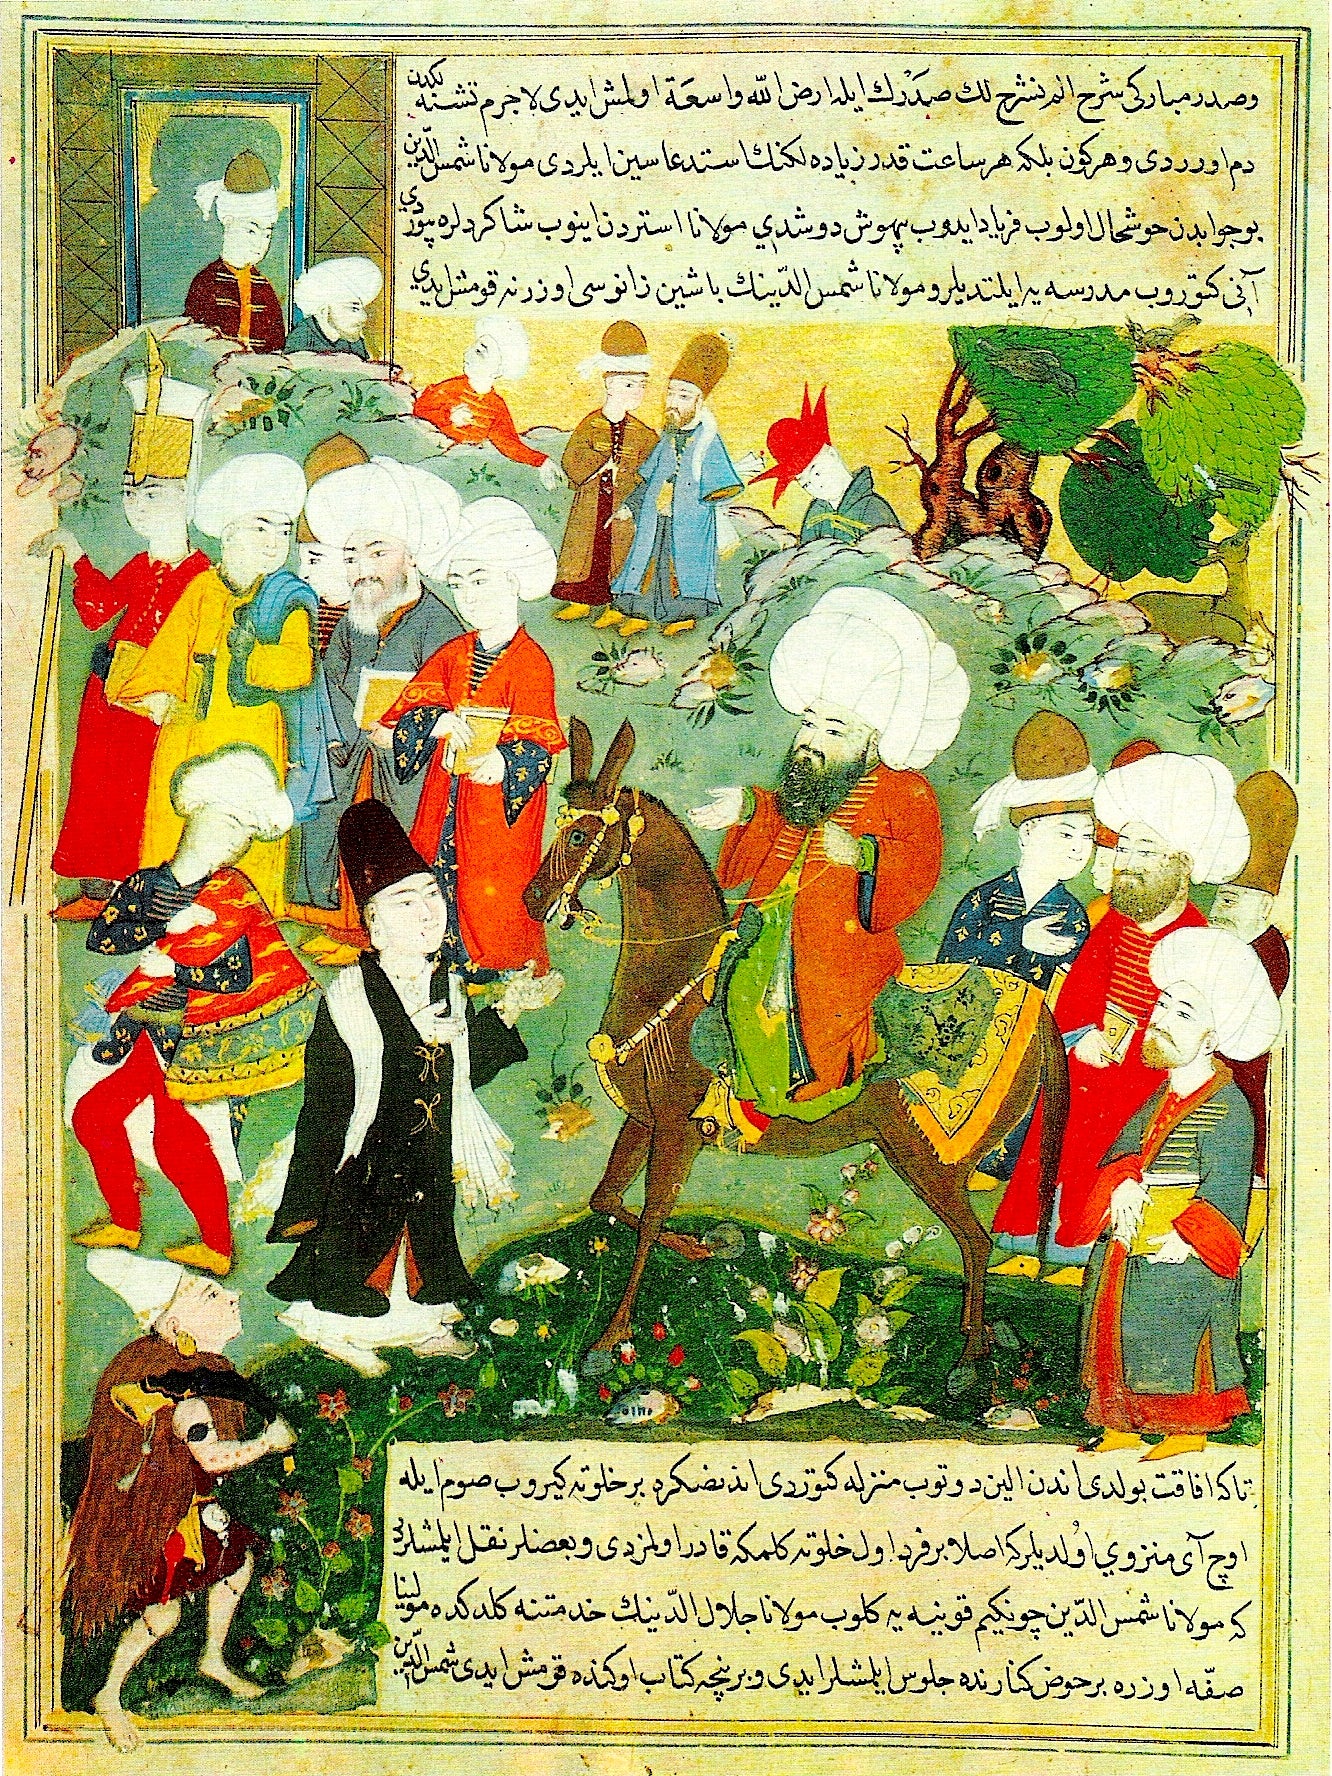 وصدر مباركى شرح الم نشرح لك صَدْرَك ايله ارض الله واسعَة اولمش ايدى لاجرم تشنه لكدن
دم اورردى وهركون بلكه هر ساعت قدر زياده لكنك استدعاسين ايلردى مولانا شمس الدّين
بو جوابدن خوشحال اولوب فرياد ايدوب بيهوش دوشدي مولانا استردن اينوب شاكردلره بيوردي
آني كتوروب مدرسه يه ايلتديلر و مولانا شمس الدّينك باشين زانوسى اوزرنه قومش ايدي
تا كه افاقت بولدى اندن الين دوتوب منزله كتوردى اندنصكره بر خلوته كيروب صوم ايله
اوچ آى منزوي اولديلر كه اصلا بر فرد اول خلوته كلمكه قادر اولمزدى و بعضلر نقل ايلمشلر
كه مولانا شمس الدّين چونكيم قونيه يه كلوب مولانا جلال الدّينك خدمتنه كلدكده مولينا
صفّه اوزره بر حوض كنارنده جلوس ايلمشلر ايدي و بر نيچه كتاب اوكنده قومش ايدى شمس الدّين